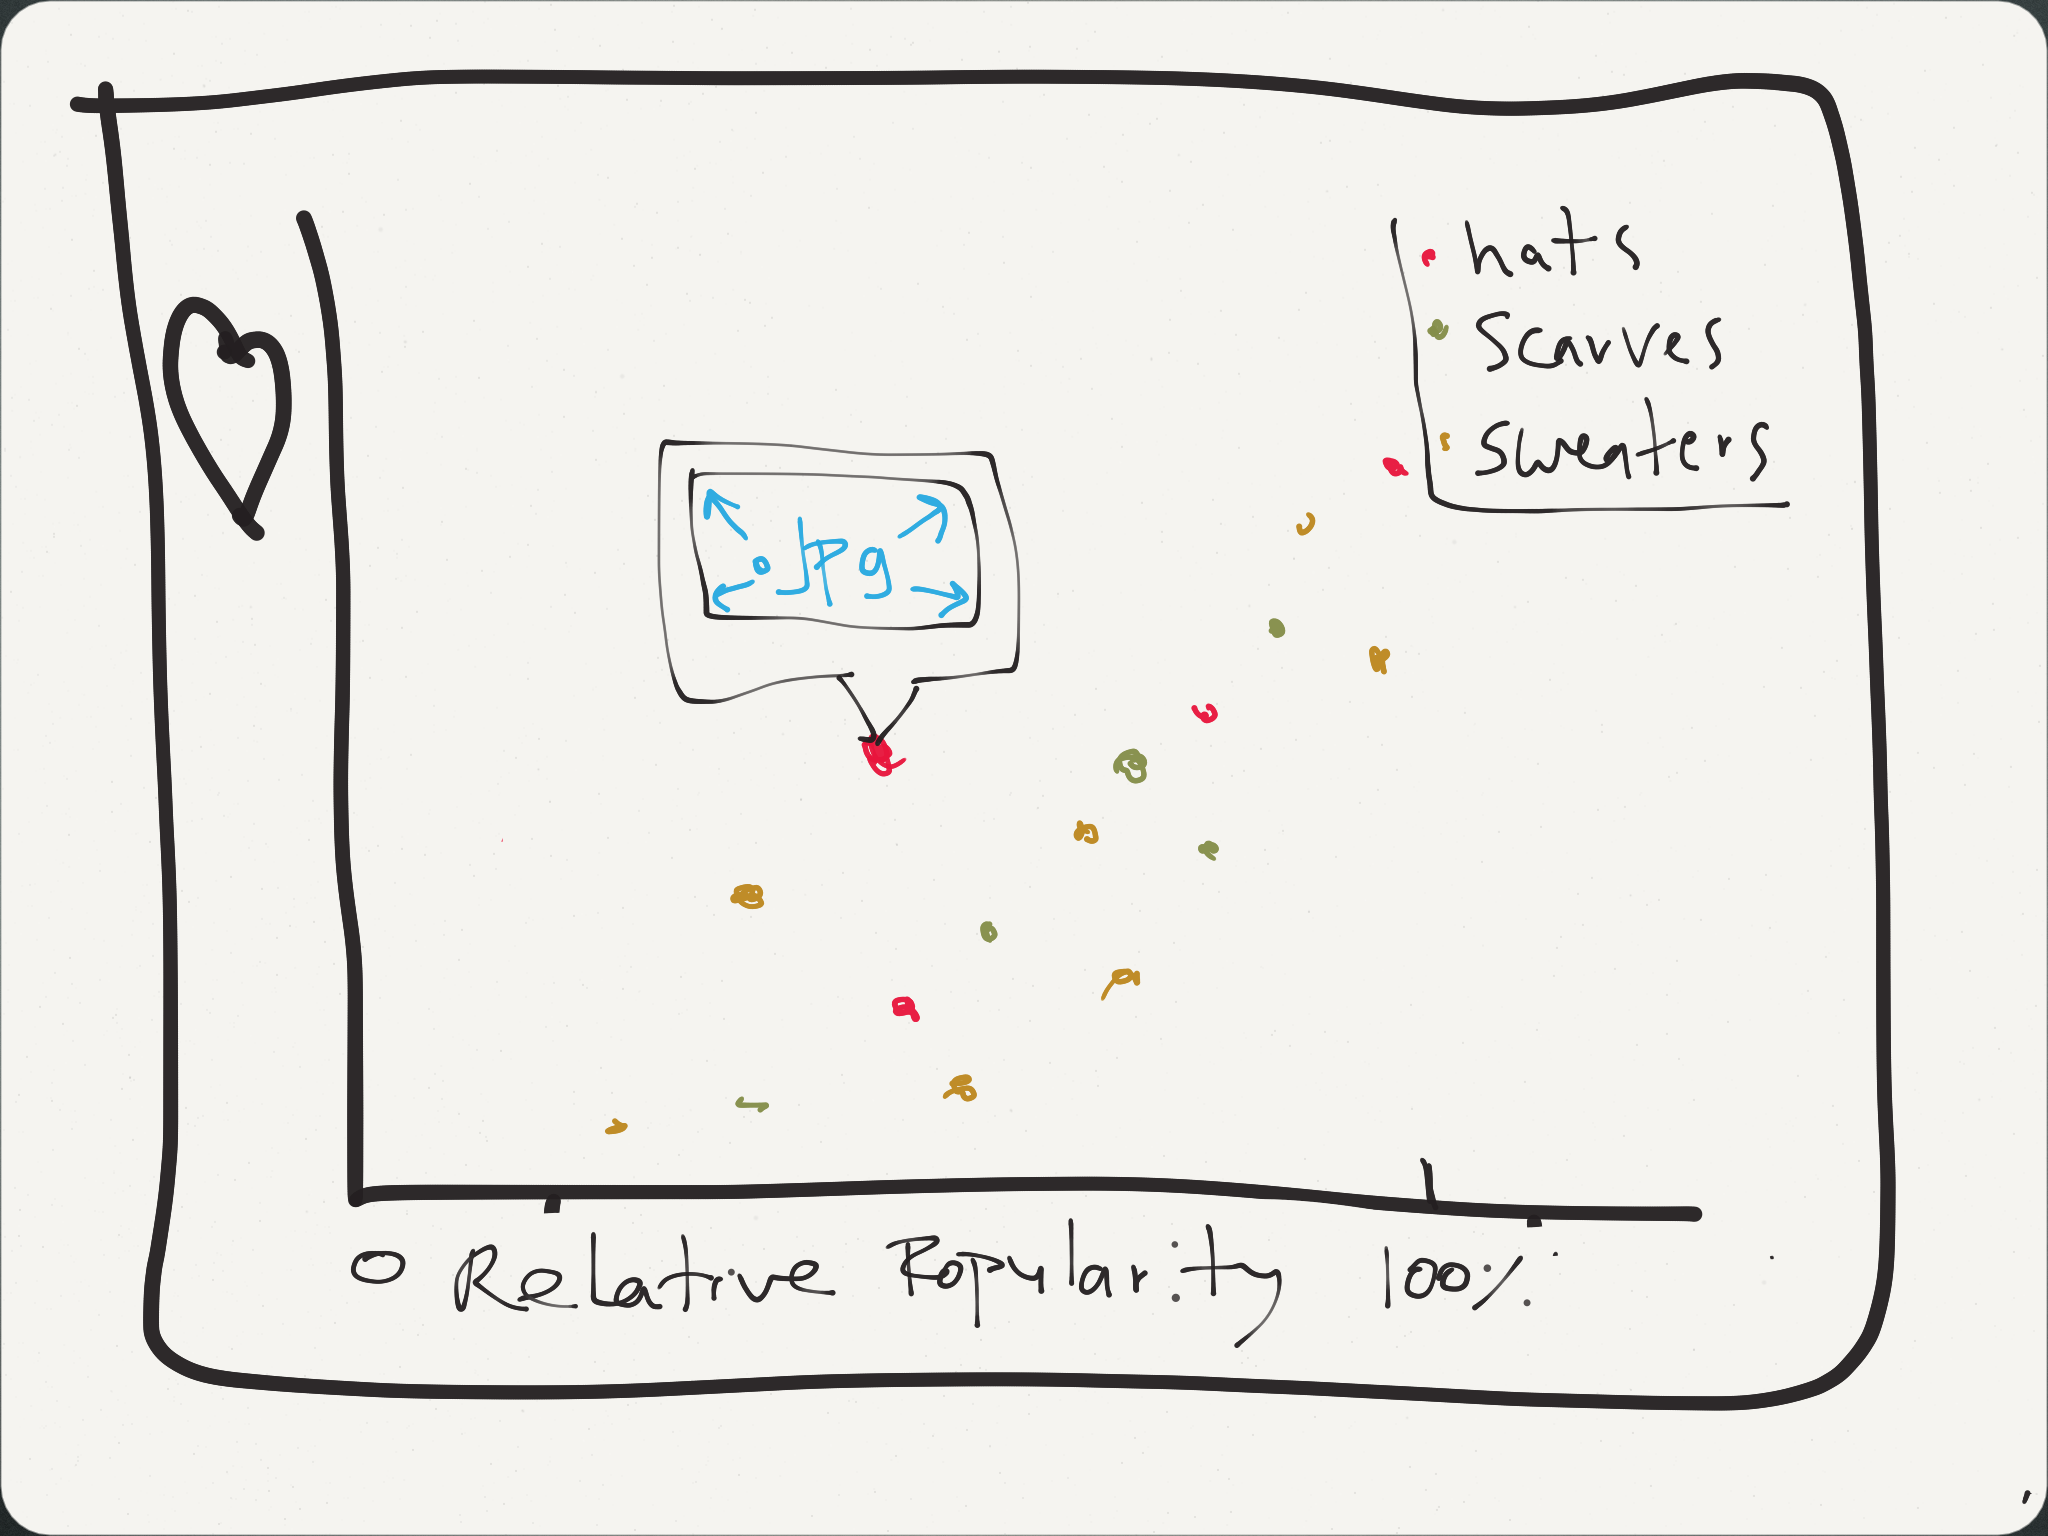 hats
Scarves
Sweaters
.Jpg
0 Relative Popularity 100%